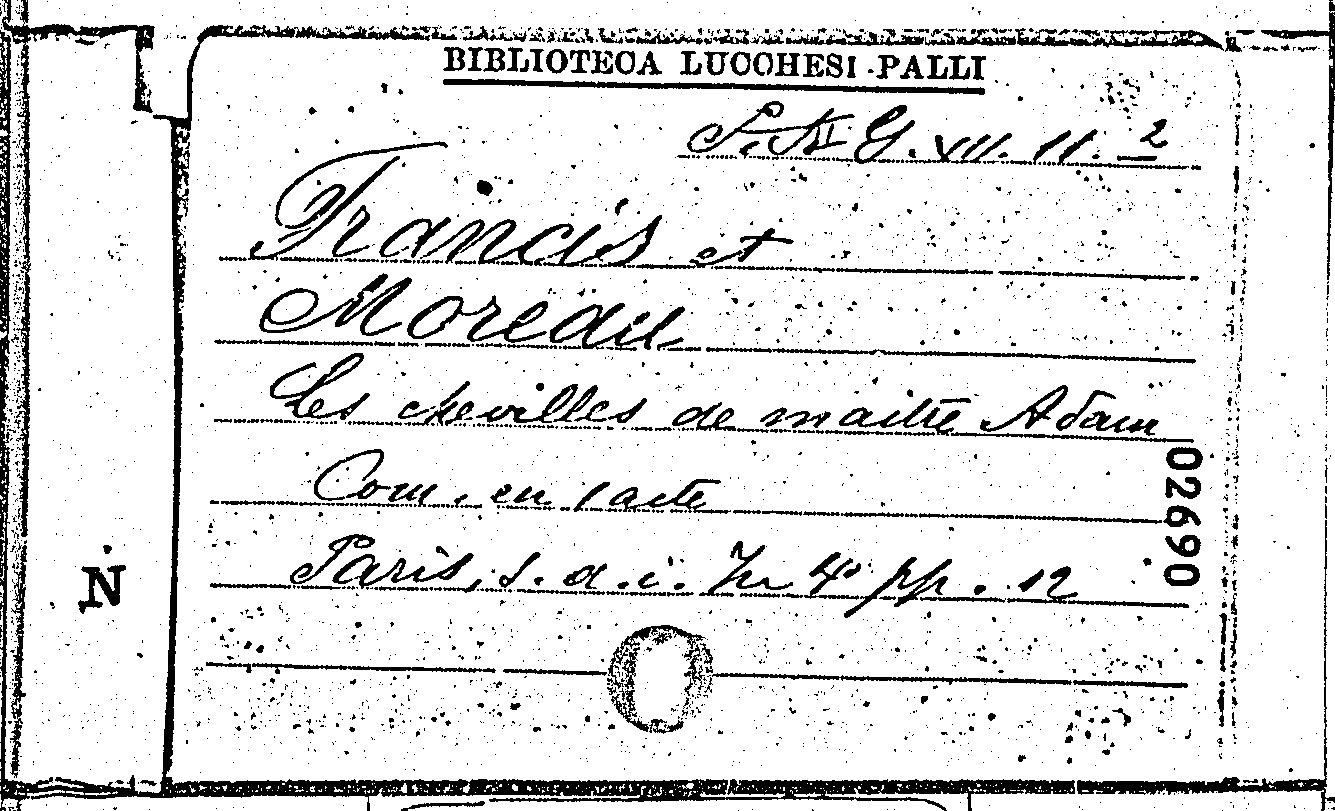 BIBLIOTECA LUCCHESI-PALLI
G. XVI. 11. 2
Francis et
Moreau
Les chevilles de maitre Adam
Com. en 1 acte
Paris, s. d. i. In 4º pp. 12
02690
N